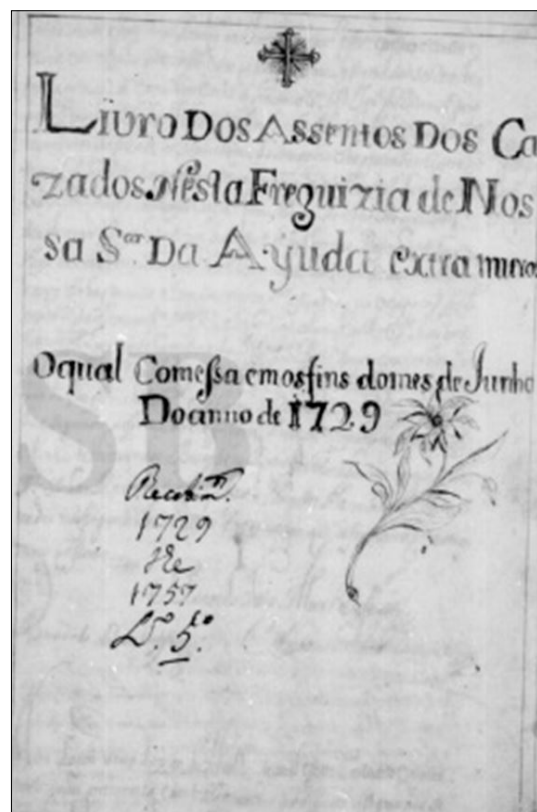 Livro Dos Assentos Dos Ca
zados Nesta Freguizia de Nos
sa Sra Da Ayuda extra muros
O qual Comessa em os fins do mes de Junho
Do anno de 1729
Recebim.
1729
1757
L.º 5.º